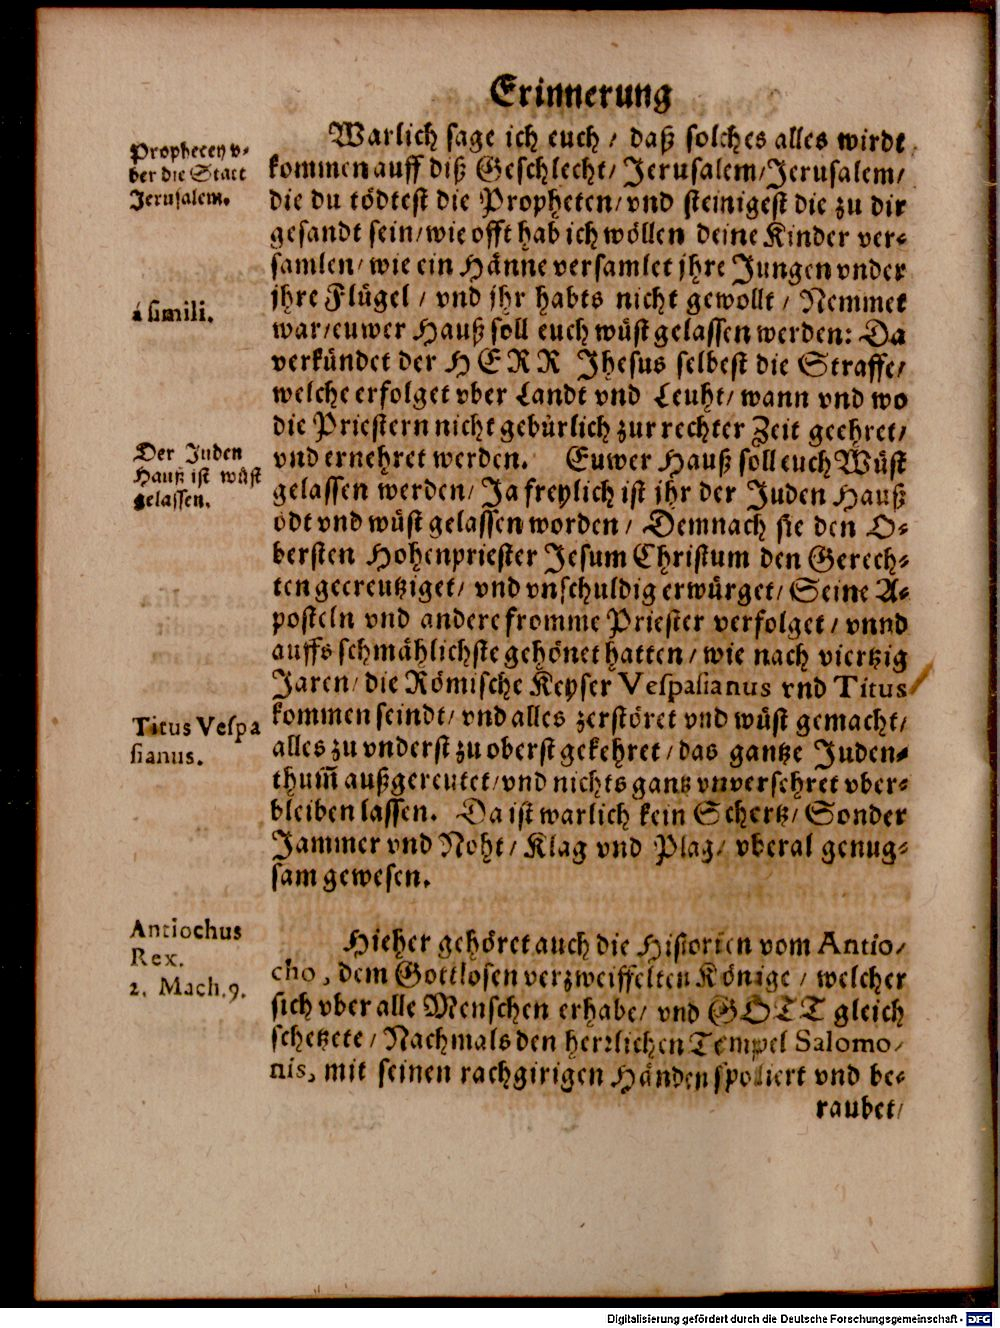 Erinnerung
Warlich sage ich euch / daß solches alles wirdt
kommen auff diß Geschlecht / Jerusalem / Jerusalem /
die du tödtest die Propheten / vnd steinigest die zu dir
gesandt sein / wie offt hab ich wöllen deine Kinder ver-
samlen / wie ein Hänne versamlet jhre Jungen vnder
jhre Flügel / vnd jhr habts nicht gewollt / Nemmet
war / euwer Hauß soll euch wüst gelassen werden: Da
verkündet der HERR Jhesus selbest die Straffe /
welche erfolget vber Landt vnd Leuht / wann vnd wo
die Priestern nicht gebürlich zur rechter Zeit geehret /
vnd ernehret werden. Euwer Hauß soll euch Wüst
gelassen werden / Ja freylich ist jhr der Juden Hauß
ödt vnd wüst gelassen worden / Demnach sie den O-
bersten Hohenpriester Jesum Christum den Gerech-
ten gecreutziget / vnd vnschuldig erwürget / Seine A-
posteln vnd andere fromme Priester verfolget / vnnd
auffs schmählichste gehönet hatten / wie nach viertzig
Jaren / die Römische Keyser Vespasianus vnd Titus
kommen seindt / vnd alles zerstöret vnd wüst gemacht /
alles zu vnderst zu oberst gekehret / das gantze Juden-
thum̃ außgereutet / vnd nichts gantz vnversehret vber-
bleiben lassen. Da ist warlich kein Schertz / Sonder
Jammer vnd Noht / Klag vnd Plag / vberal genug-
sam gewesen.
Hieher gehöret auch die Historien vom Antio-
cho, dem Gottlosen verzweiffelten Könige / welcher
sich vber alle Menschen erhabe / vnd GOTT gleich
schetzete / Nachmals den herrlichen Tempel Salomo-
nis, mit seinen rachgirigen Händen spoliert vnd be-
raubet /
Prophecey v-
ber die Statt
Jerusalem.
á simili.
Der Juden
Hauß ist wüst
gelassen.
Titus Vespa
sianus.
Antiochus
Rex.
2. Mach. 9.
Digitalisierung gefördert durch die Deutsche Forschungsgemeinschaft - DFG